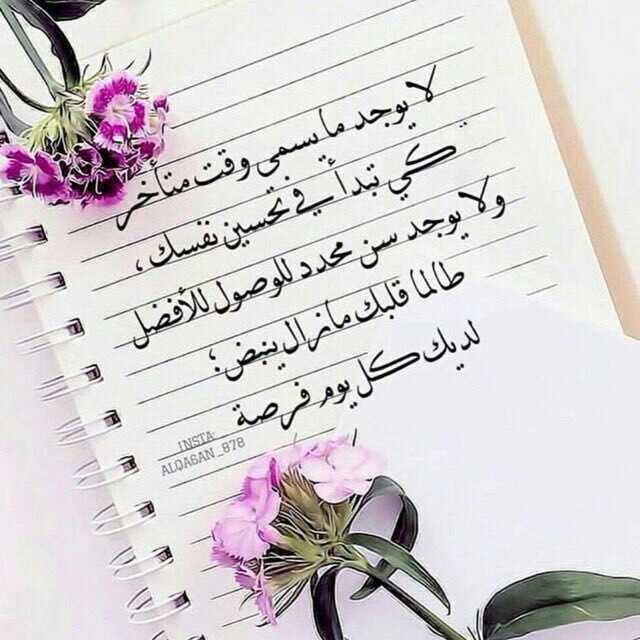 لا يوجد ما يسمى وقت متأخر
كي تبدأ في تحسين نفسك ،
ولا يوجد سن محدد للوصول للأفضل
طالما قلبك مازال ينبض ؛
لديك كل يوم فرصة
INSTA:
ALQASAN_878